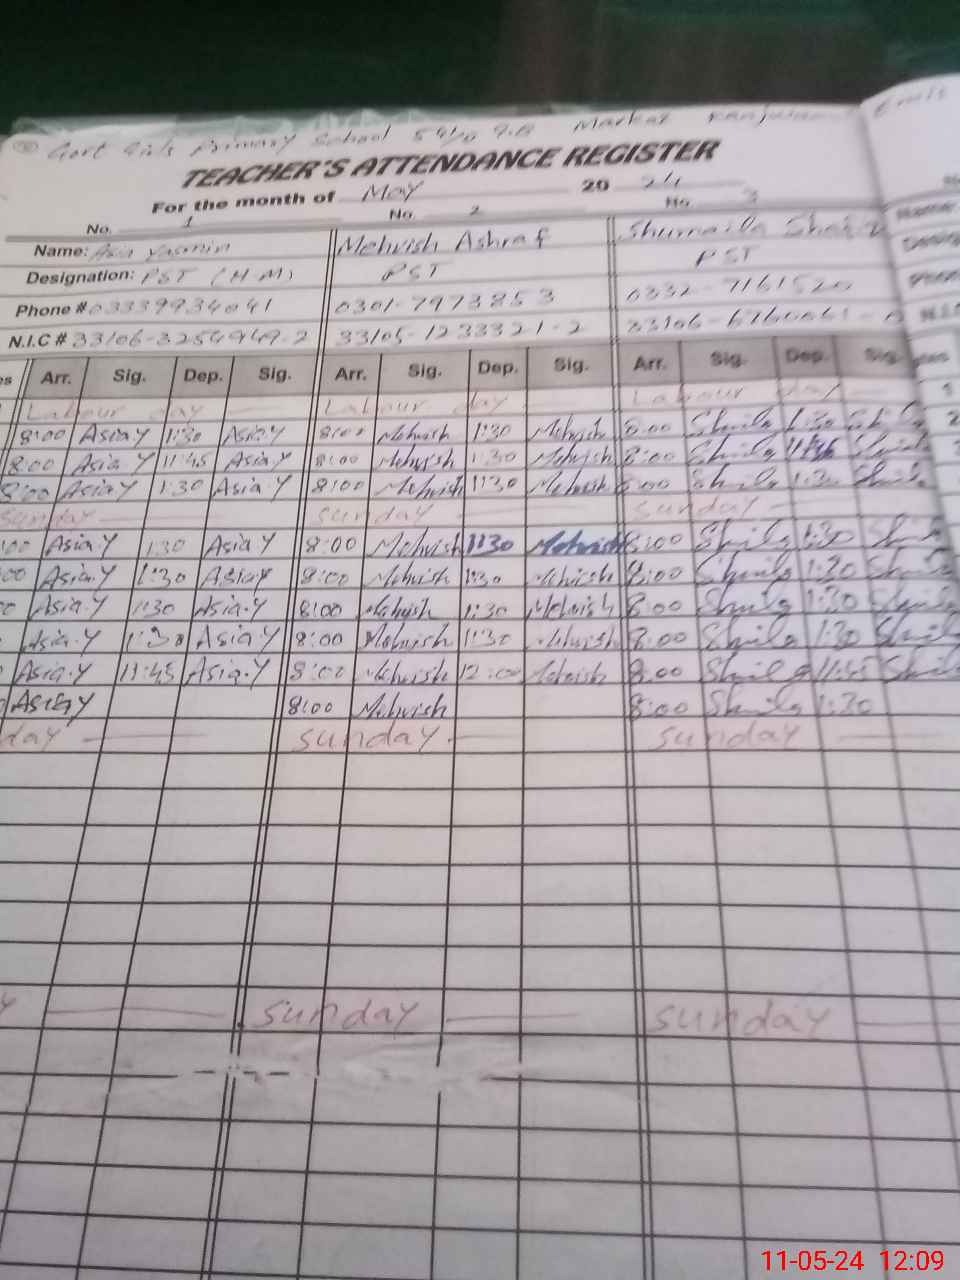 Govt Girls Primary School 541/ G.B Markaz
TEACHER'S ATTENDANCE REGISTER
For the month of May 20 24
No. 1 No. 2 No. 3
Name: Asia Yasmin Mehvish Ashraf Shumaila
Designation: PST (H M) PST PST
Phone # 03339934041 0301-7973853 0332-
N.I.C # 33106-3254949-2 33105-1233321-2 33106-
Arr. Sig. Dep. Sig. Arr. Sig. Dep. Sig. Arr. Sig. Dep. Sig.
Labour day Labour day Labour day
8:00 Asia.Y 1:30 Asia.Y 8:00 Mehvish 1:30 Mehvish 8:00 Shmila 1:30
8:00 Asia.Y 11:45 Asia.Y 8:00 Mehvish 1:30 Mehvish 8:00 Shmila
8:00 Asia.Y 1:30 Asia.Y 8:00 Mehvish 1:30 Mehvish 8:00 Shmila 1:30
Sunday Sunday Sunday
:00 Asia.Y 1:30 Asia.Y 8:00 Mehvish 1:30 Mehvish 8:00 Shmila 1:30
00 Asia.Y 1:30 Asia.Y 8:00 Mehvish 1:30 Mehvish 8:00 Shmila 1:30
0 Asia.Y 1:30 Asia.Y 8:00 Mehvish 1:30 Mehvish 8:00 Shmila 1:30
Asia.Y 1:30 Asia.Y 8:00 Mehvish 1:30 Mehvish 8:00 Shmila 1:30
Asia.Y 11:45 Asia.Y 8:00 Mehvish 12:00 Mehvish 8:00 Shmila 11:45
Asia.Y 8:00 Mehvish 8:00 Shmila 1:30
day Sunday Sunday
y Sunday Sunday
11-05-24 12:09